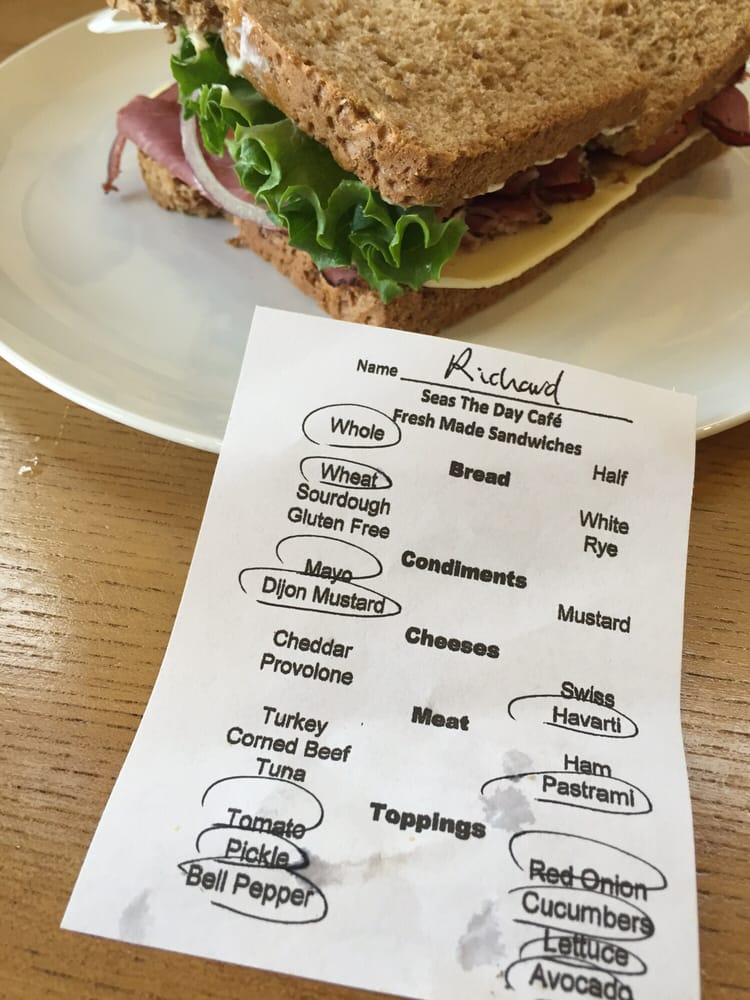 Name Richard
Seas The Day Café
Fresh Made Sandwiches
Whole Half
Bread
Wheat White
Sourdough Rye
Gluten Free
Condiments
Mayo Mustard
Dijon Mustard
Cheeses
Cheddar Swiss
Provolone Havarti
Meat
Turkey Ham
Corned Beef Pastrami
Tuna
Toppings
Tomato Red Onion
Pickle Cucumbers
Bell Pepper Lettuce
Avocado